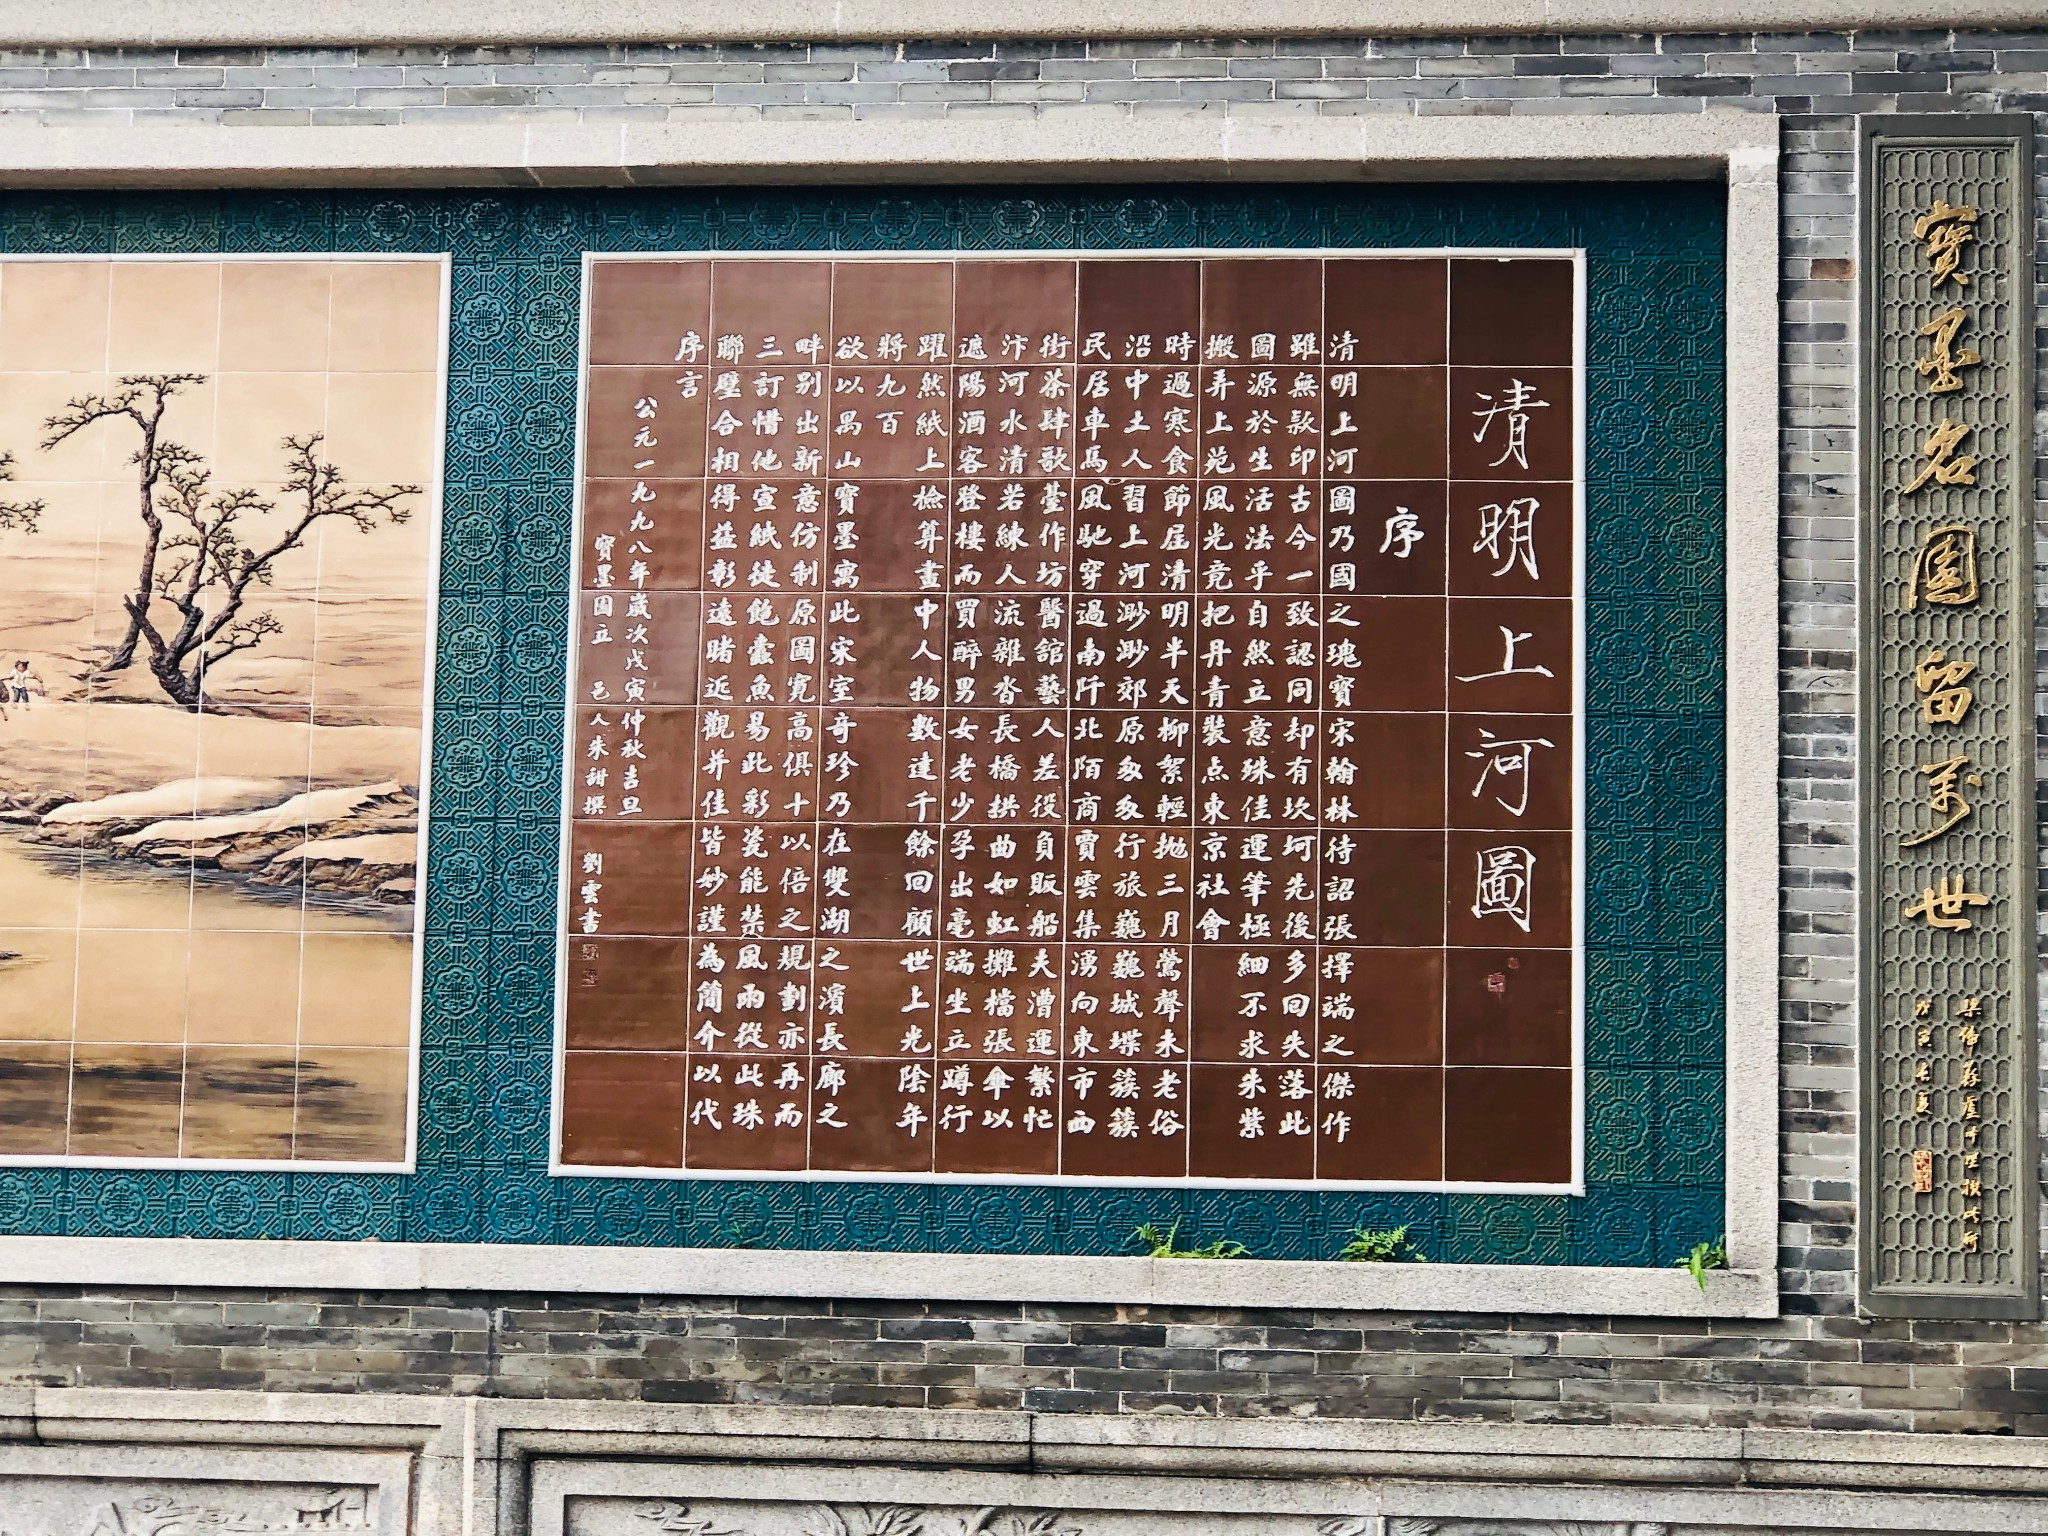 寶墨名園留萬世
戊寅
清明上河圖
序
清明上河圖乃國之瑰寶宋翰林待詔張擇端之傑作
雖無款印古今一致認同却有坎坷先後多回失落此
圖源於生活法乎自然立意殊佳運筆極細不求朱紫
搬弄上苑風光竟把丹青裝点東京社會
時過寒食節屆清明半天柳絮輕拋三月鶯聲未老俗
沿中土人習上河渺渺郊原多多行旅巍巍城堞簇簇
民居車馬風馳穿過南阡北陌商賈雲集湧向東市西
街茶肆歌臺作坊醫舘藝人差役負販船夫漕運繁忙
汴河水清若練人流雜沓長橋拱曲如虹攤檔張傘以
遮陽酒客登樓而買醉男女老少孕出毫端坐立蹲行
躍然紙上檢算畫中人物數達千餘回顧世上光陰年
將九百
欲以禺山寶墨寓此宋室奇珍乃在雙湖之濱長廊之
畔别出新意仿制原圖寬高俱十以倍之規劃亦再而
三訂惜他宣紙徒飽蠹魚易此彩瓷能禁風雨從此珠
聯璧合相得益彰遠睹近觀并佳皆妙謹為簡介以代
序言
公元一九九八年歲次戊寅仲秋吉旦
寶墨園立 邑人朱甜撰 劉雲書